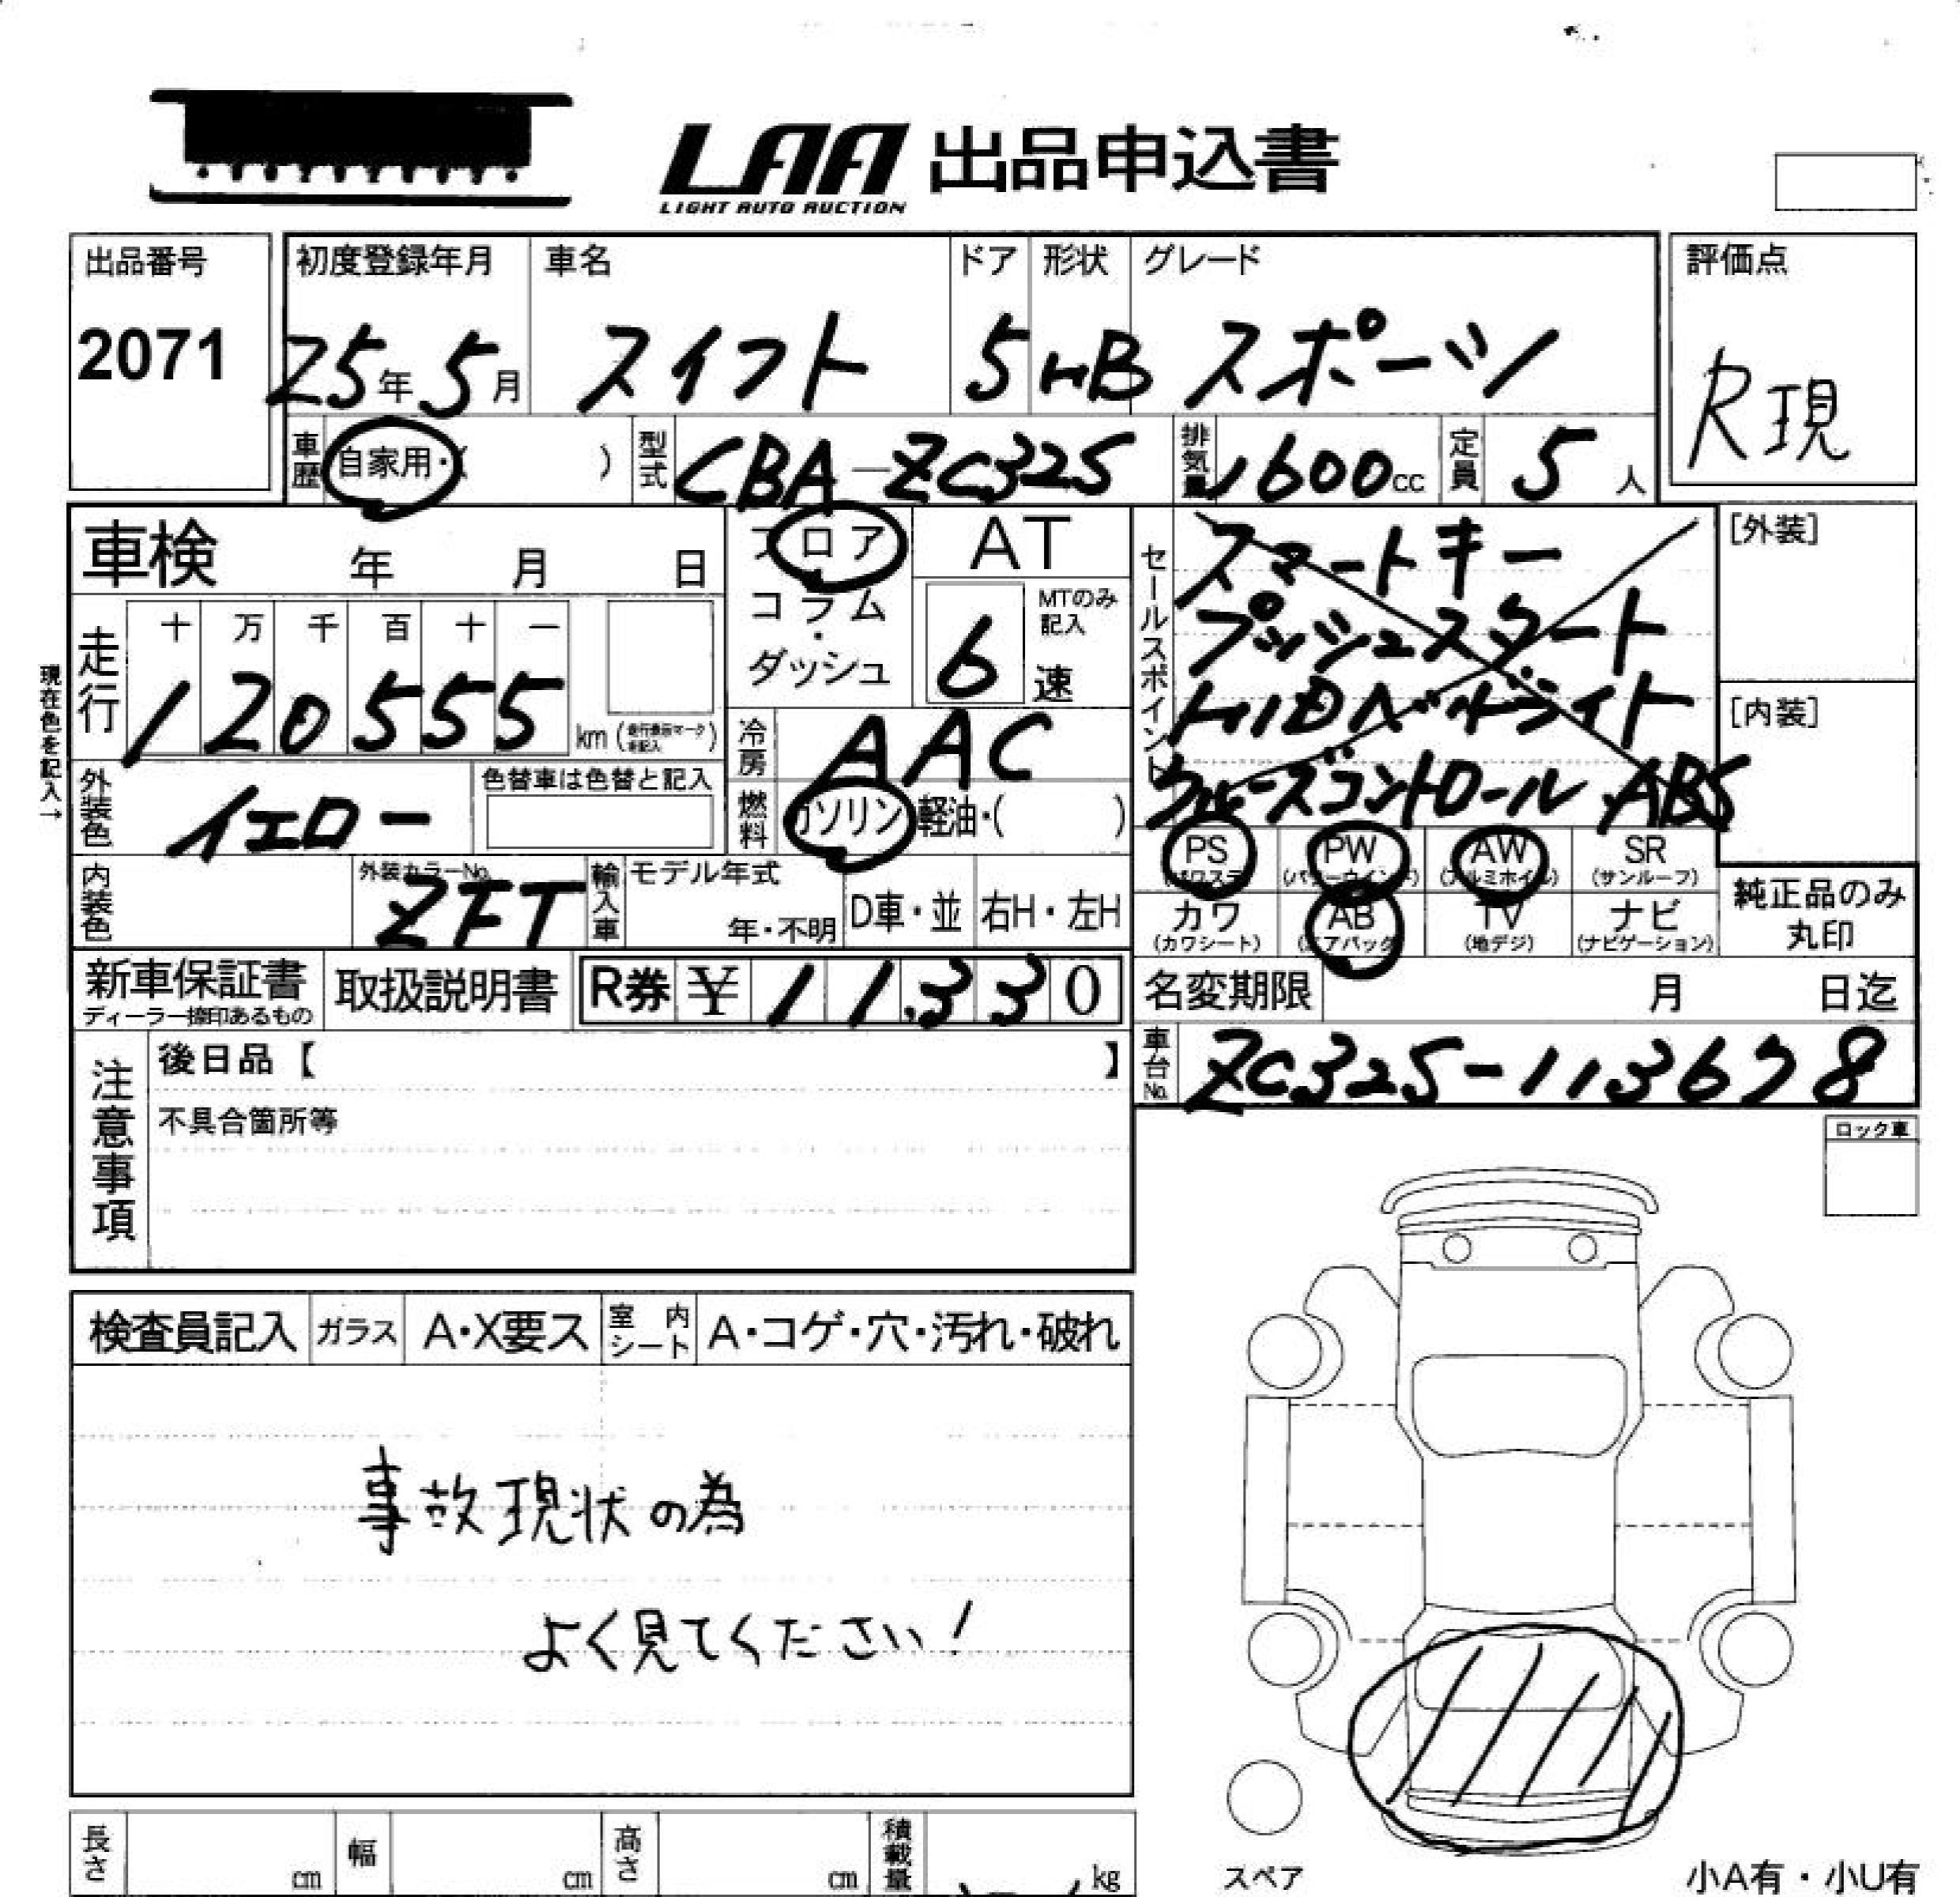 LAA 出品申込書
LIGHT AUTO AUCTION
出品番号
2071
初度登録年月
25年5月
車名
スイフト
ドア
5
形状
HB
グレード
スポーツ
評価点
R現
車歴
自家用・( )
型式
CBA-ZC32S
排気量
1600cc
定員
5人
車検 年 月 日
フロア
コラム
・
ダッシュ
AT
6
MTのみ
記入
速
セールスポイント
スマートキー
プッシュスタート
HIDヘッドライト
クルーズコントロール ABS
[外装]
[内装]
現在色を記入→
走行
十 万 千 百 十 一
1 2 0 5 5 5 km
冷房
AAC
外装色
イエロー
色替車は色替と記入
燃料
ガソリン 軽油・( )
PS
(パワステ)
PW
(パワーウインド)
AW
(アルミホイル)
SR
(サンルーフ)
カワ
(カワシート)
AB
(エアバック)
TV
(地デジ)
ナビ
(ナビゲーション)
純正品のみ
丸印
内装色
外装カラーNo.
ZFT
輸入車
モデル年式
年・不明
D車・並
右H・左H
新車保証書
ディーラー捺印あるもの
取扱説明書
R券 ¥ 11,330
名変期限 月 日迄
車台No.
ZC32S-113678
注意事項
後日品【 】
不具合箇所等
ロック車
検査員記入
ガラス
A・X要ス
室内シート
A・コゲ・穴・汚れ・破れ
事故現状の為
よく見てください!
長さ cm
幅 cm
高さ cm
積載量 kg
スペア
小A有・小U有